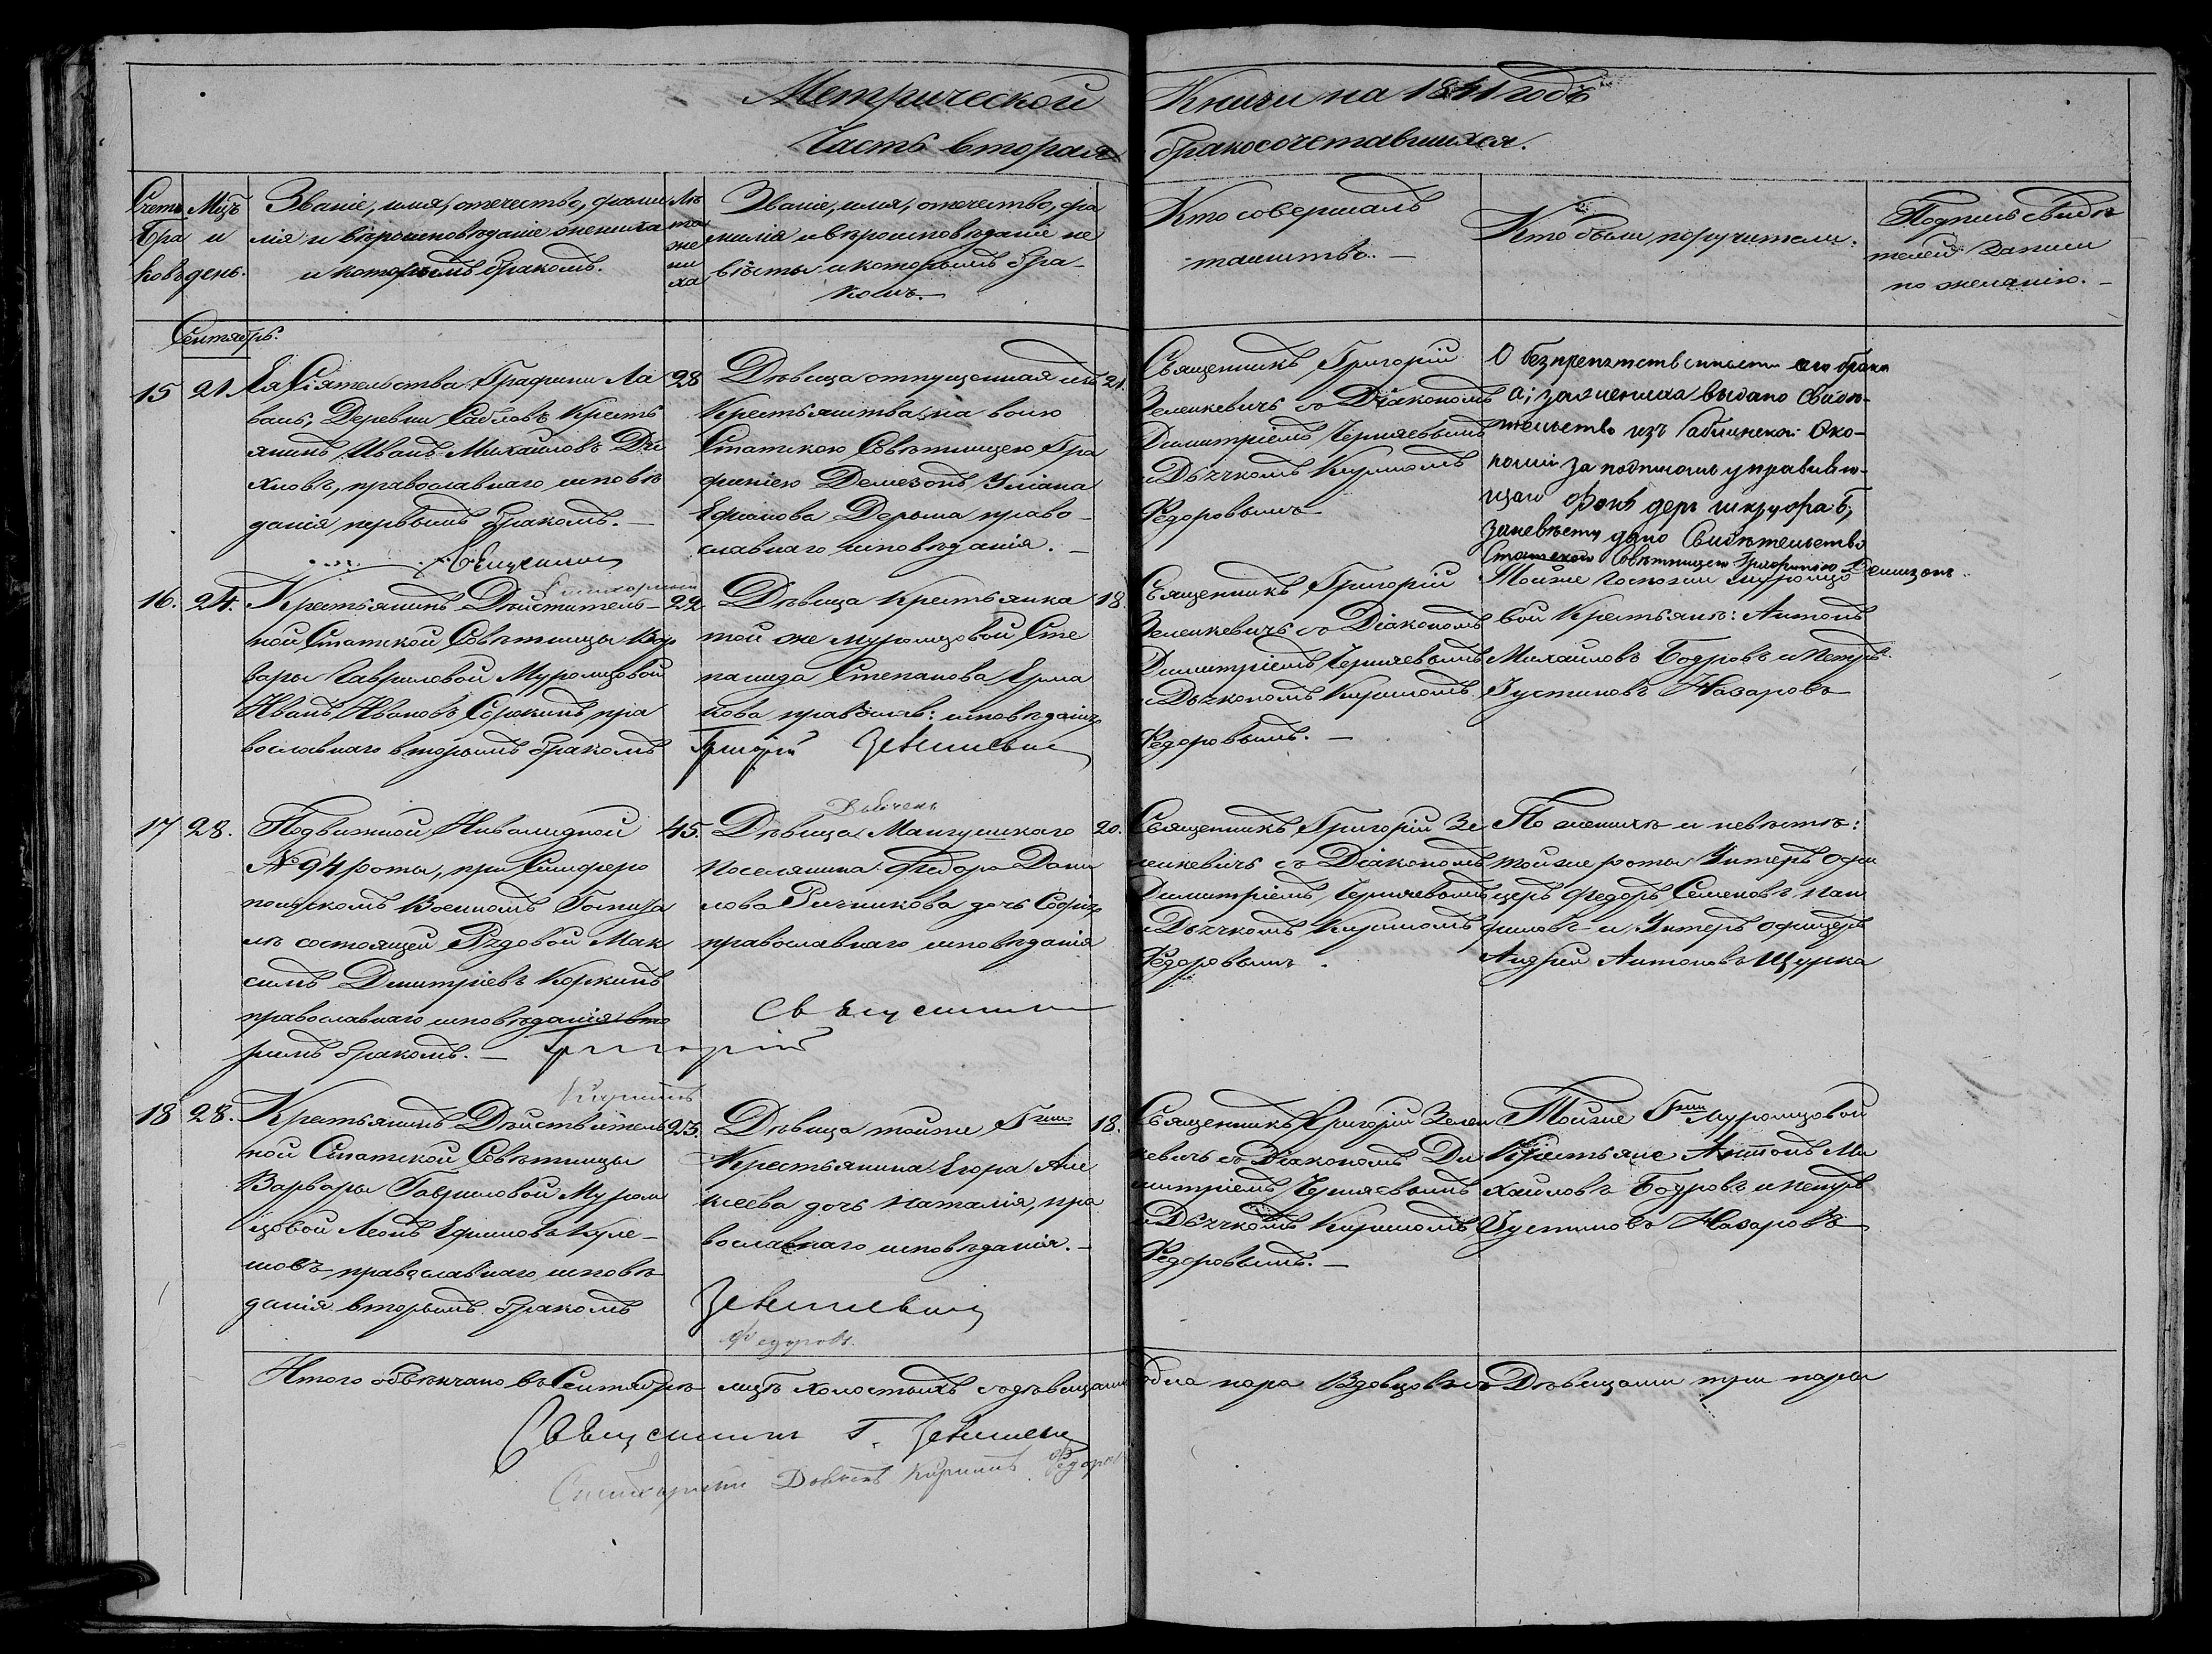 Метрической Книги на 1841 годъ
Часть вторая бракосочетавшихся.
Счетъ браковъ
Мцъ и день.
Званіе, имя, отечество, фами
лія и вѣроисповѣданіе жениха
и которымъ бракомъ.
Лѣта жениха
Званіе, имя, отечество, фа
милія и вѣроисповѣданіе не
вѣсты и которымъ бра-
комъ.
Кто совершалъ
таинство. –
Кто были поручители.
Подпись свидѣ
телей записи
по желанію. –
Сентябрь.
15
21.
Ея Сіятельства Графини Ла
валь, Деревни Сабловъ Кресть
янинъ Иванъ Михайловъ
православнаго исповѣ
данія первымъ бракомъ. –
Священникъ
28
Дѣвица отпущенная изъ
Крестьянства на волю
Статскою Совѣтницею Гра
финею Демезонъ Уліана
Ефимова Дерьма право-
славнаго исповѣданія. –
21.
Священникъ Григорій
Зеленкевичъ съ Діакономъ
Димитріемъ Черняевымъ
и Дьячкомъ Кириломъ
Федоровымъ
О безпрепятственности сего брака
а, за жениха выдано Свидѣ-
тельство изъ Саблинской Эко-
номіи за подписомъ управляю-
щаго
за невѣсту дано Свидѣтельство
Статскою Совѣтницею Демизонъ.
16.
24.
Крестьянинъ Дѣйствитель-
ной Статской Совѣтницы Вар
вары Гавриловой Муромцовой
Иванъ Ивановъ Сорокинъ, пра
вославнаго вторымъ бракомъ
22.
Дѣвица крестьянка
той же Муромцовой Сте
панида Степанова Ерма
кова православ: исповѣданія
Григорій Зеленкевичъ
18.
Священникъ Григорій
Зеленкевичъ съ Діакономъ
Димитріемъ Черняевымъ
и Дьячкомъ Кириломъ
Федоровымъ. –
Тойже Госпожи Муромцо
вой Крестьяне: Антонъ
Михаиловъ Бодровъ и Петръ
Густиновъ Назаровъ
17
28.
Подвижной Инвалидной
№ 94 роты, при Симферо
польскомъ Военномъ Госпита
лѣ состоящей Рядовой Мак
симъ Димитріевъ Коркинъ
православнаго исповѣданія вто
рымъ бракомъ. –
Григорій
45.
Дьячекъ
Дѣвица Мангушскаго
поселянина Федора Дани
лова Ричникова дочь Софія
православнаго исповѣданія
Священникъ
20.
Священникъ Григорій Зе
ленкевичъ съ Діакономъ
Димитріемъ Черняевымъ
и Дьячкомъ Кириломъ
Федоровымъ.
По женихѣ и невѣстѣ:
тойже роты Унтеръ офи
церъ Федоръ Семеновъ Пан
филовъ и Унтеръ офицеръ
Андрей Антоновъ Щурка
18
28.
Кирилъ
Крестьянинъ Дѣйствитель
ной Статской Совѣтницы
Варвары Гавриловой Муром
цовой Леонъ Ефимовъ Куле-
шовъ православнаго исповѣ
данія вторымъ бракомъ
23.
Дѣвица тойже Г-жи
Крестьянина Егора Але
ксѣева дочь Наталія, пра
вославнаго исповѣданія. –
Зеленкевичъ
Федоровъ
18.
Священникъ Григорій Зелен
кевичъ съ Діакономъ Ди
митріемъ Черняевымъ
и Дьячкомъ Кириломъ
Федоровымъ. –
Тойже Г-жи Муромцовой
Крестьяне Антонъ Ми
хаиловъ Бодровъ и Петръ
Густиновъ Назаровъ
Итого обвѣнчано въ Сентябрѣ мцѣ холостыхъ съ дѣвицами одна пара Вдовцовъ съ Дѣвицами три пары
Священникъ Г. Зеленкевичъ
Стихарный Дьячекъ Кирилъ Федоровъ